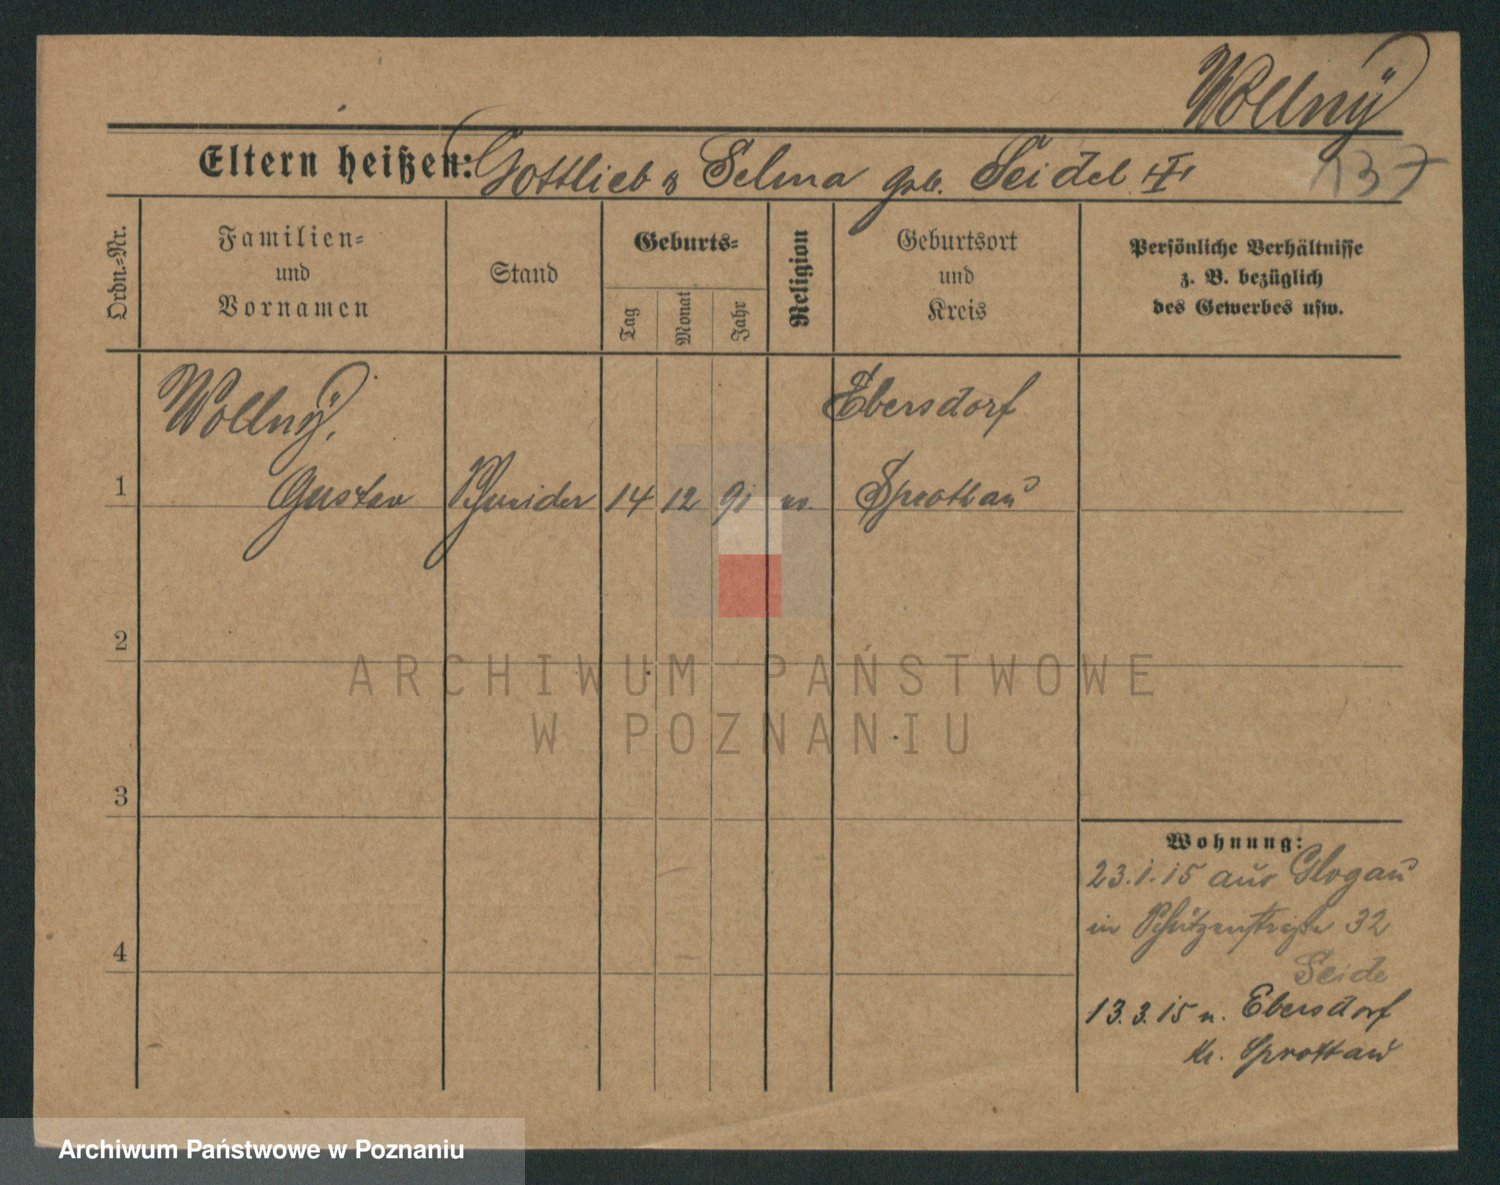 Wollnÿ
137
Eltern heißen: Gottlieb & Selma geb. Seidel
Ordn.-Nr.
Familien-
und
Vornamen
Stand
Geburts-
Tag
Monat
Jahr
Religion
Geburtsort
und
Kreis
Persönliche Verhältnisse
z. B. bezüglich
des Gewerbes usw.
Wollnÿ,
Ebersdorf
1 Gustav Schneider 14 12 91 ev. Sprottau
2
ARCHIWUM PAŃSTWOWE
W POZNANIU
3
4
Wohnung:
23.1.15 aus Glogau
in Schützenstraße 32
Seide
13.3.15 n. Ebersdorf
Kr. Sprottau
Archiwum Państwowe w Poznaniu